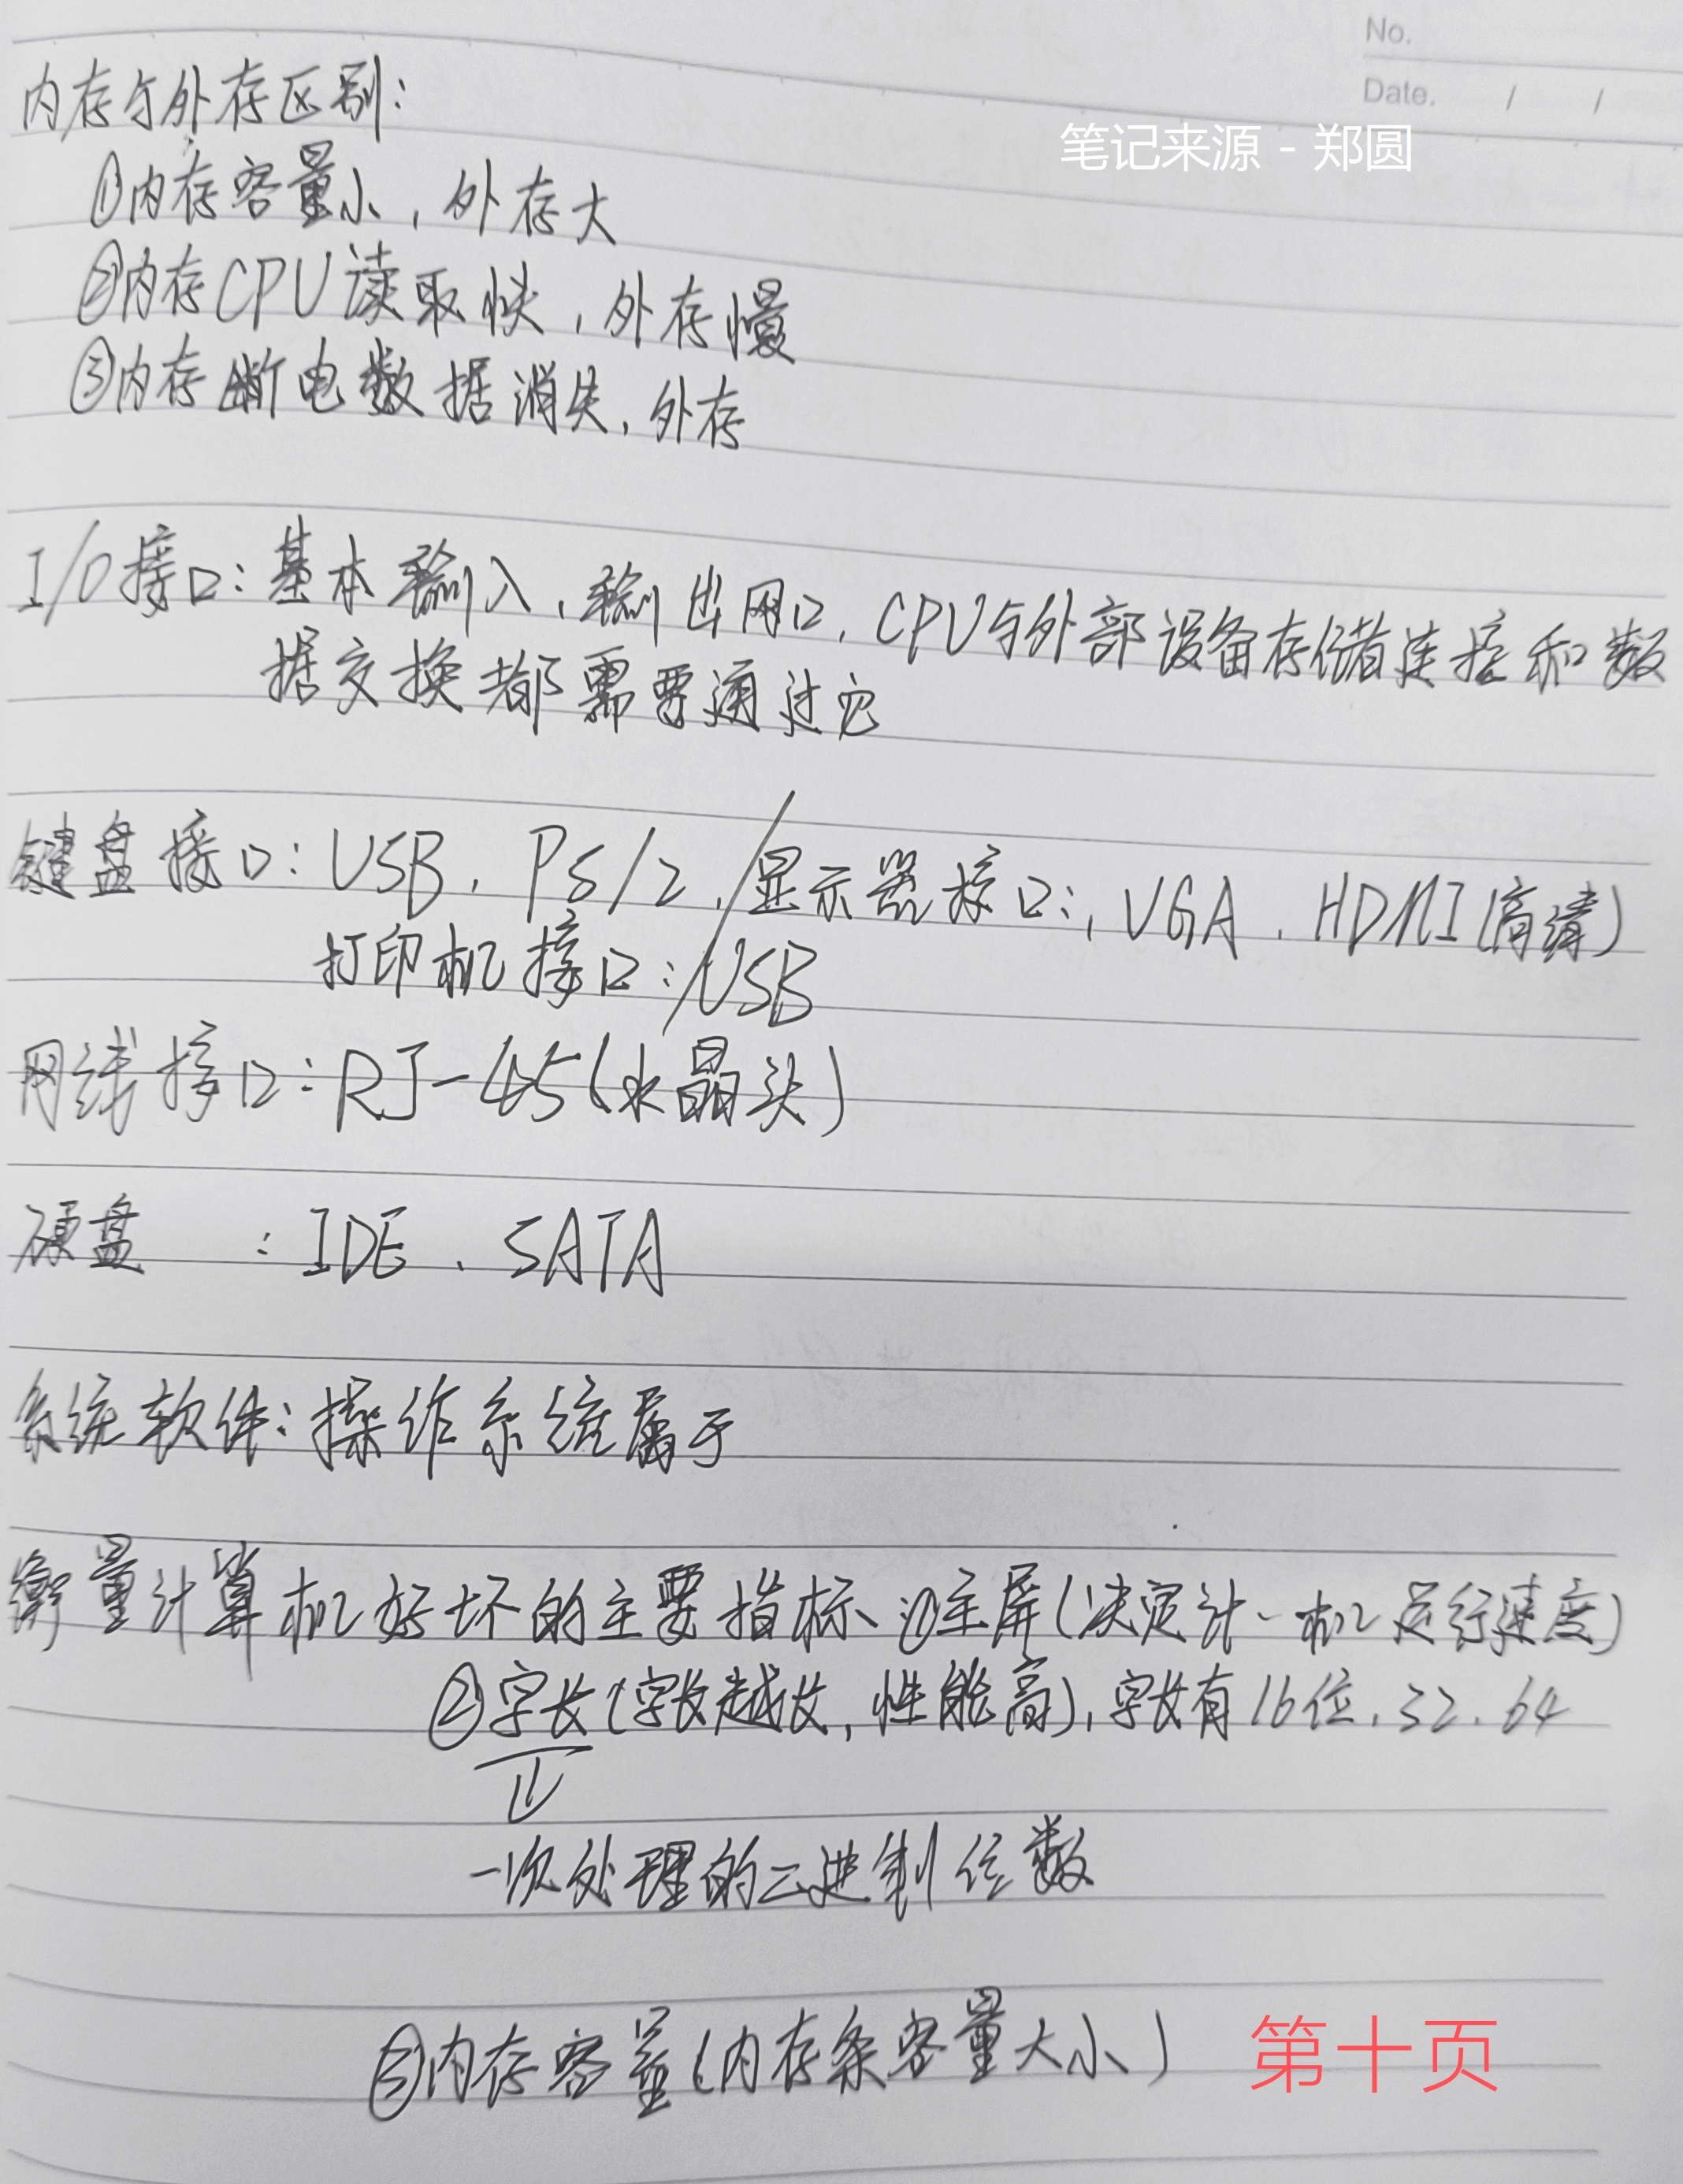 No.
Date. / /
笔记来源 - 郑圆
内存与外存区别:
①内存容量小，外存大
②内存CPU读取快，外存慢
③内存断电数据消失，外存
I/O接口:基本输入、输出网口，CPU与外部设备存储连接和数
据交换都需要通过它
键盘接口:USB、PS/2、/显示器接口:，VGA、HDMI(高清)
打印机接口:/USB
网线接口:RJ-45(水晶头)
硬盘 :IDE、SATA
系统软件:操作系统属于
衡量计算机好坏的主要指标、①主屏(决定计一机运行速度)
②字长(字长越长，性能高)，字长有16位、32、64
一次处理的二进制位数
③内存容量(内存条容量大小)
第十页